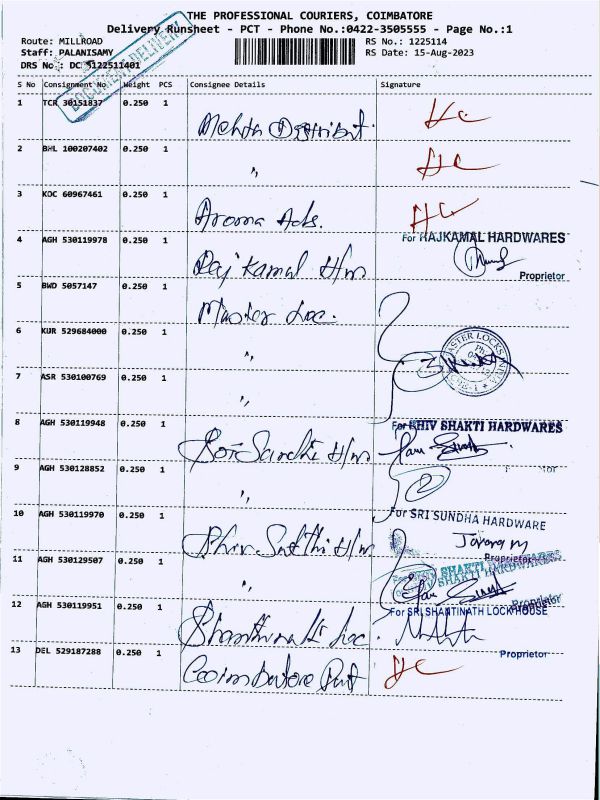 THE PROFESSIONAL COURIERS, COIMBATORE
Delivery Runsheet - PCT - Phone No.:0422-3505555 - Page No.:1
Route: MILLROAD
RS No.: 1225114
Staff: PALANISAMY
RS Date: 15-Aug-2023
DRS No.: DC 5122511401
DOCUMENT DELIVERY
S No Consignment No. Weight PCS Consignee Details Signature
1 TCR 30151837 0.250 1 Mehta Distribut.
2 BHL 100207402 0.250 1 ,,
3 KOC 60967461 0.250 1 Aroma Ads.
For RAJKAMAL HARDWARES
4 AGH 530119978 0.250 1 Raj Kamal H/w
Proprietor
5 BWD 5057147 0.250 1 Master Loc.
6 KUR 529684000 0.250 1 ,,
MASTER LOCKS
7 ASR 530100769 0.250 1 ,,
8 AGH 530119948 0.250 1 H/w
For SHIV SHAKTI HARDWARES
9 AGH 530128852 0.250 1 ,,
2
For SRI SUNDHA HARDWARE
10 AGH 530119970 0.250 1 H/w
Proprietor
11 AGH 530129507 0.250 1 ,,
SHIV SHAKTI HARDWARES
Proprietor
12 AGH 530119951 0.250 1 Loc.
For SRI SHANTINATH LOCK HOUSE
Proprietor
13 DEL 529187288 0.250 1 Coimbatore